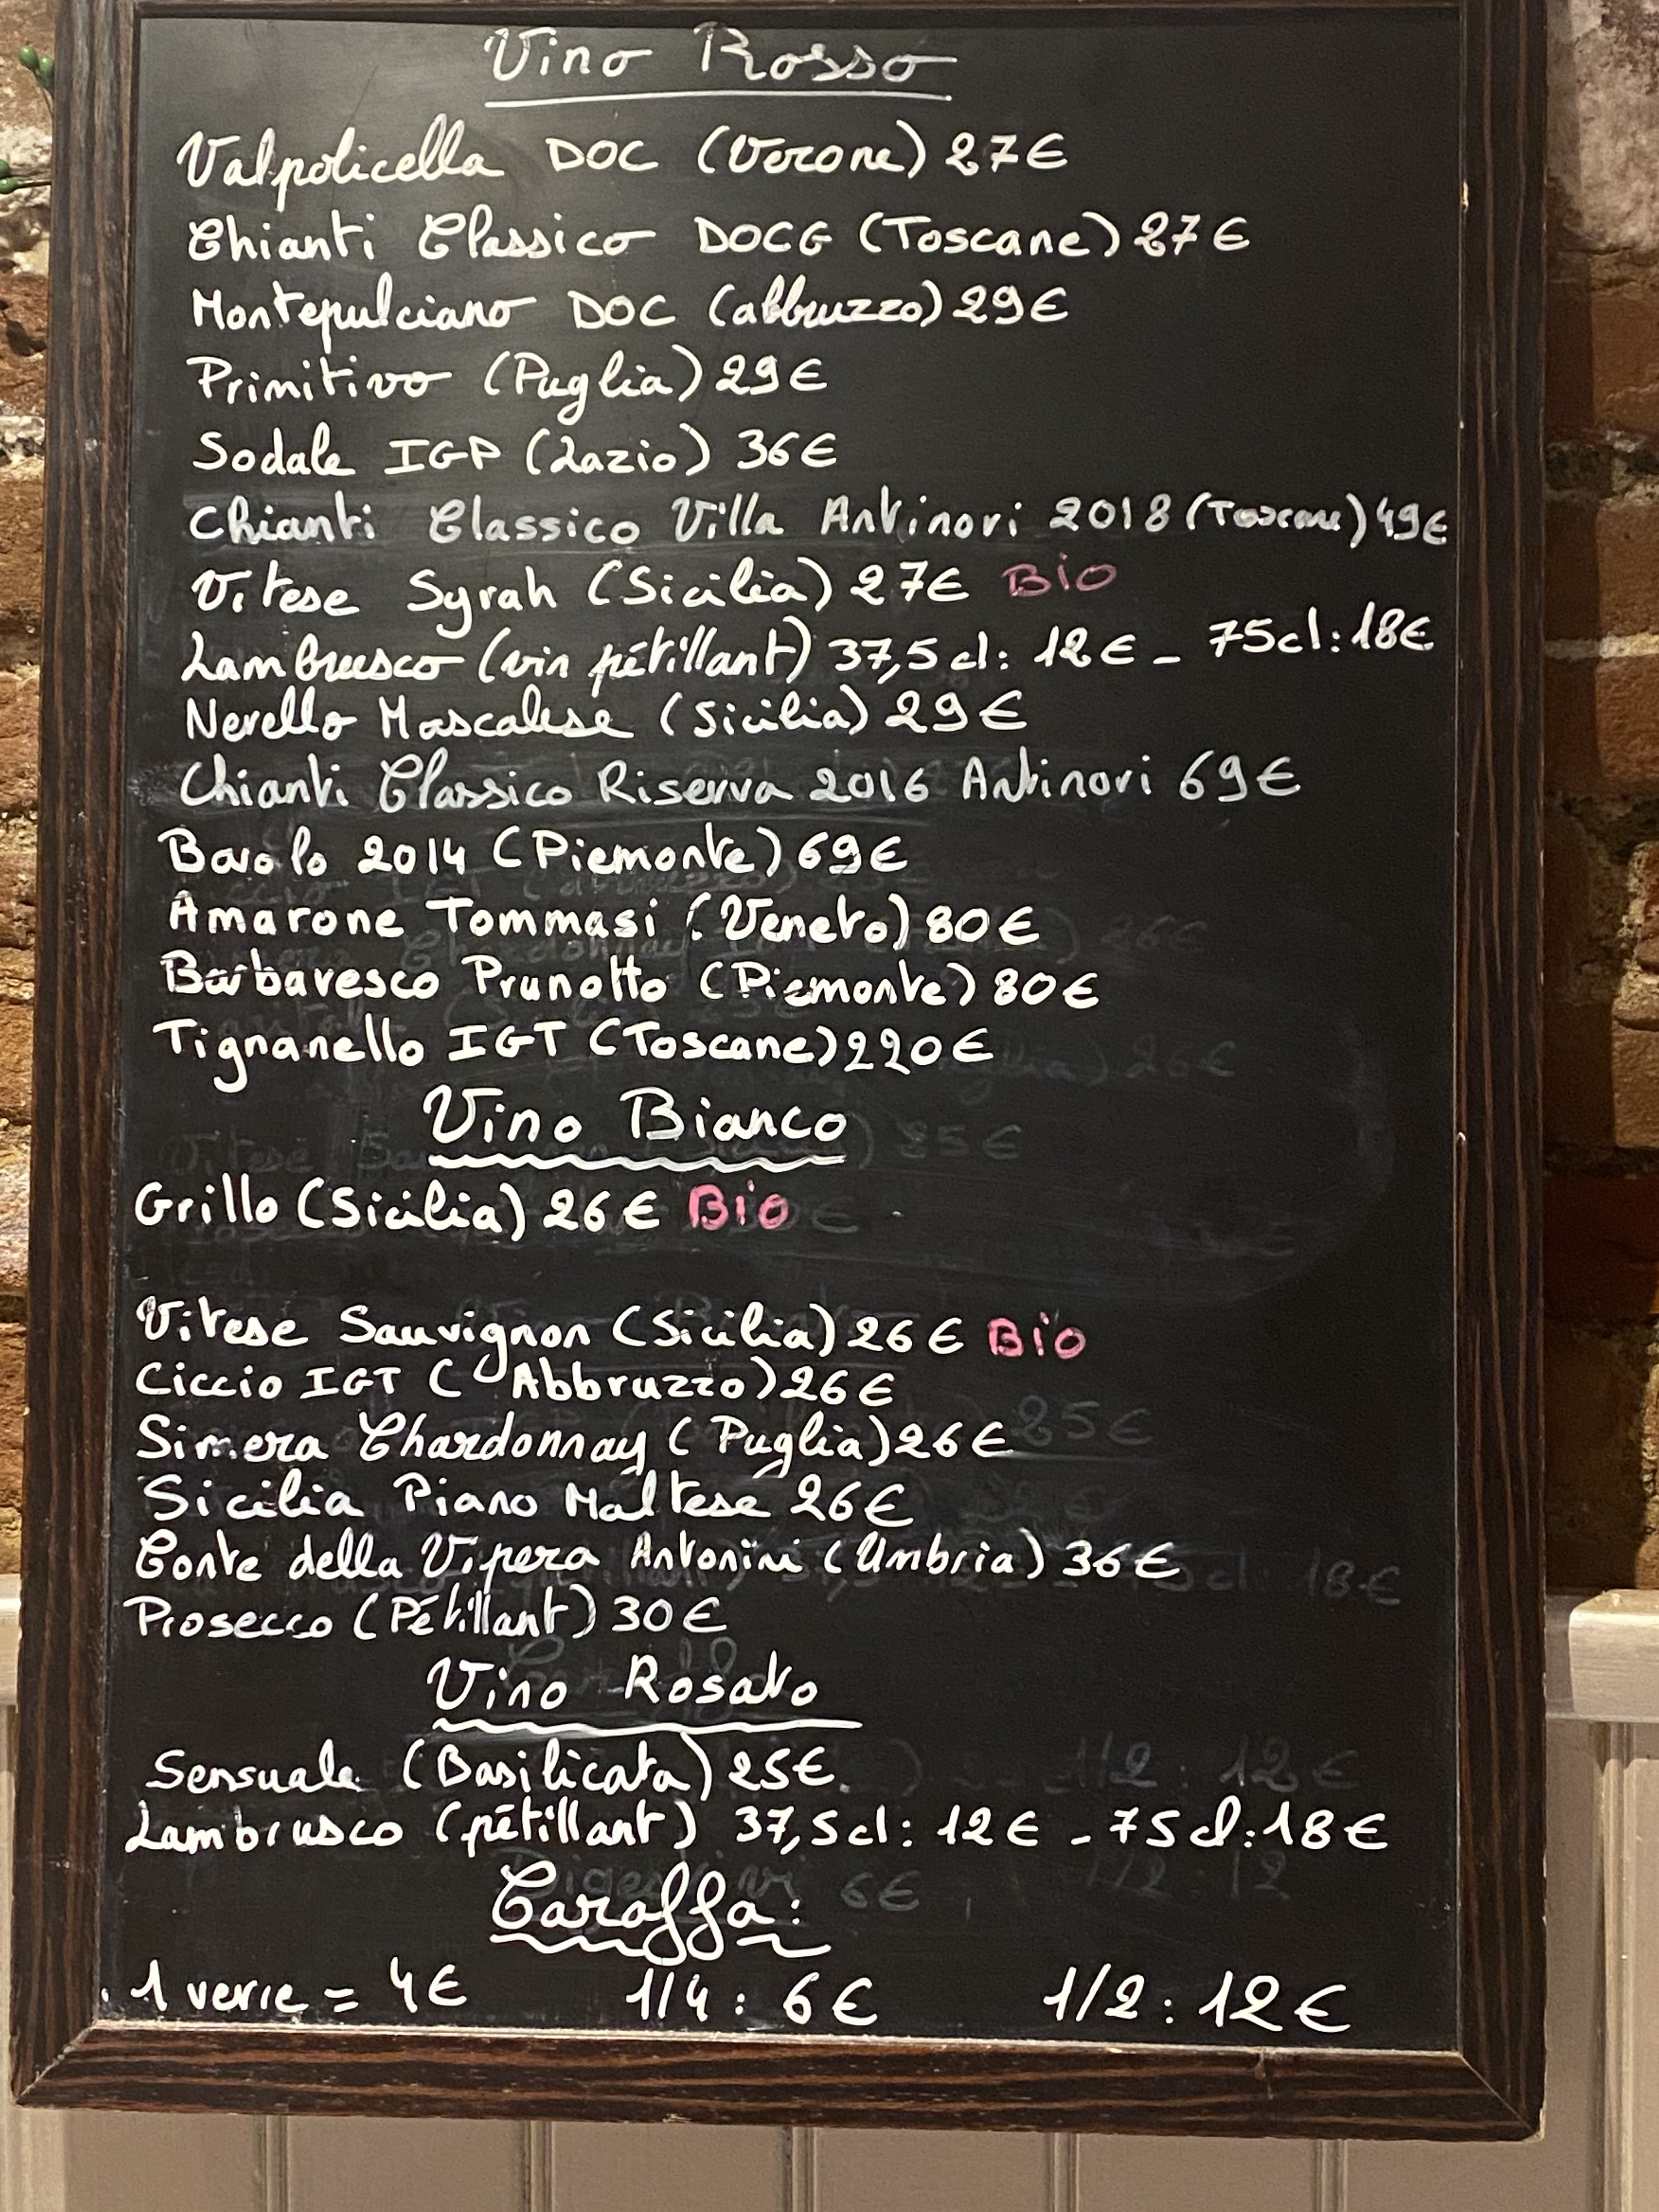 Vino Rosso
Valpolicella DOC (Verone) 27€
Chianti Classico DOCG (Toscane) 27€
Montepulciano DOC (abbruzzo) 29€
Primitivo (Puglia) 29€
Sodale IGP (Lazio) 36€
Chianti Classico Villa Antinori 2018 (Toscane) 49€
Vitese Syrah (Sicilia) 27€ Bio
Lambrusco (vin pétillant) 37,5 cl: 12€ - 75cl: 18€
Nerello Mascalese (Sicilia) 29€
Chianti Classico Riserva 2016 Antinori 69€
Barolo 2014 (Piemonte) 69€
Amarone Tommasi (Veneto) 80€
Barbaresco Prunotto (Piemonte) 80€
Tignanello IGT (Toscane) 220€
Vino Bianco
Grillo (Sicilia) 26€ Bio
Vitese Sauvignon (Sicilia) 26€ Bio
Ciccio IGT (Abbruzzo) 26€
Simera Chardonnay (Puglia) 26€
Sicilia Piano Maltese 26€
Conte della Vipera Antonini (Umbria) 36€
Prosecco (Pétillant) 30€
Vino Rosato
Sensuale (Basilicata) 25€
Lambrusco (pétillant) 37,5cl: 12€ - 75cl: 18€
Caraffa:
1 verre = 4€ 1/4: 6€ 1/2: 12€